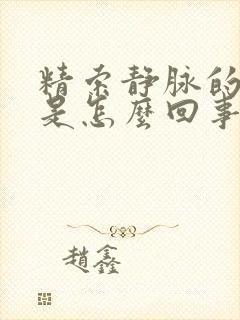 精索静脉的
是怎麼回事
趙鑫